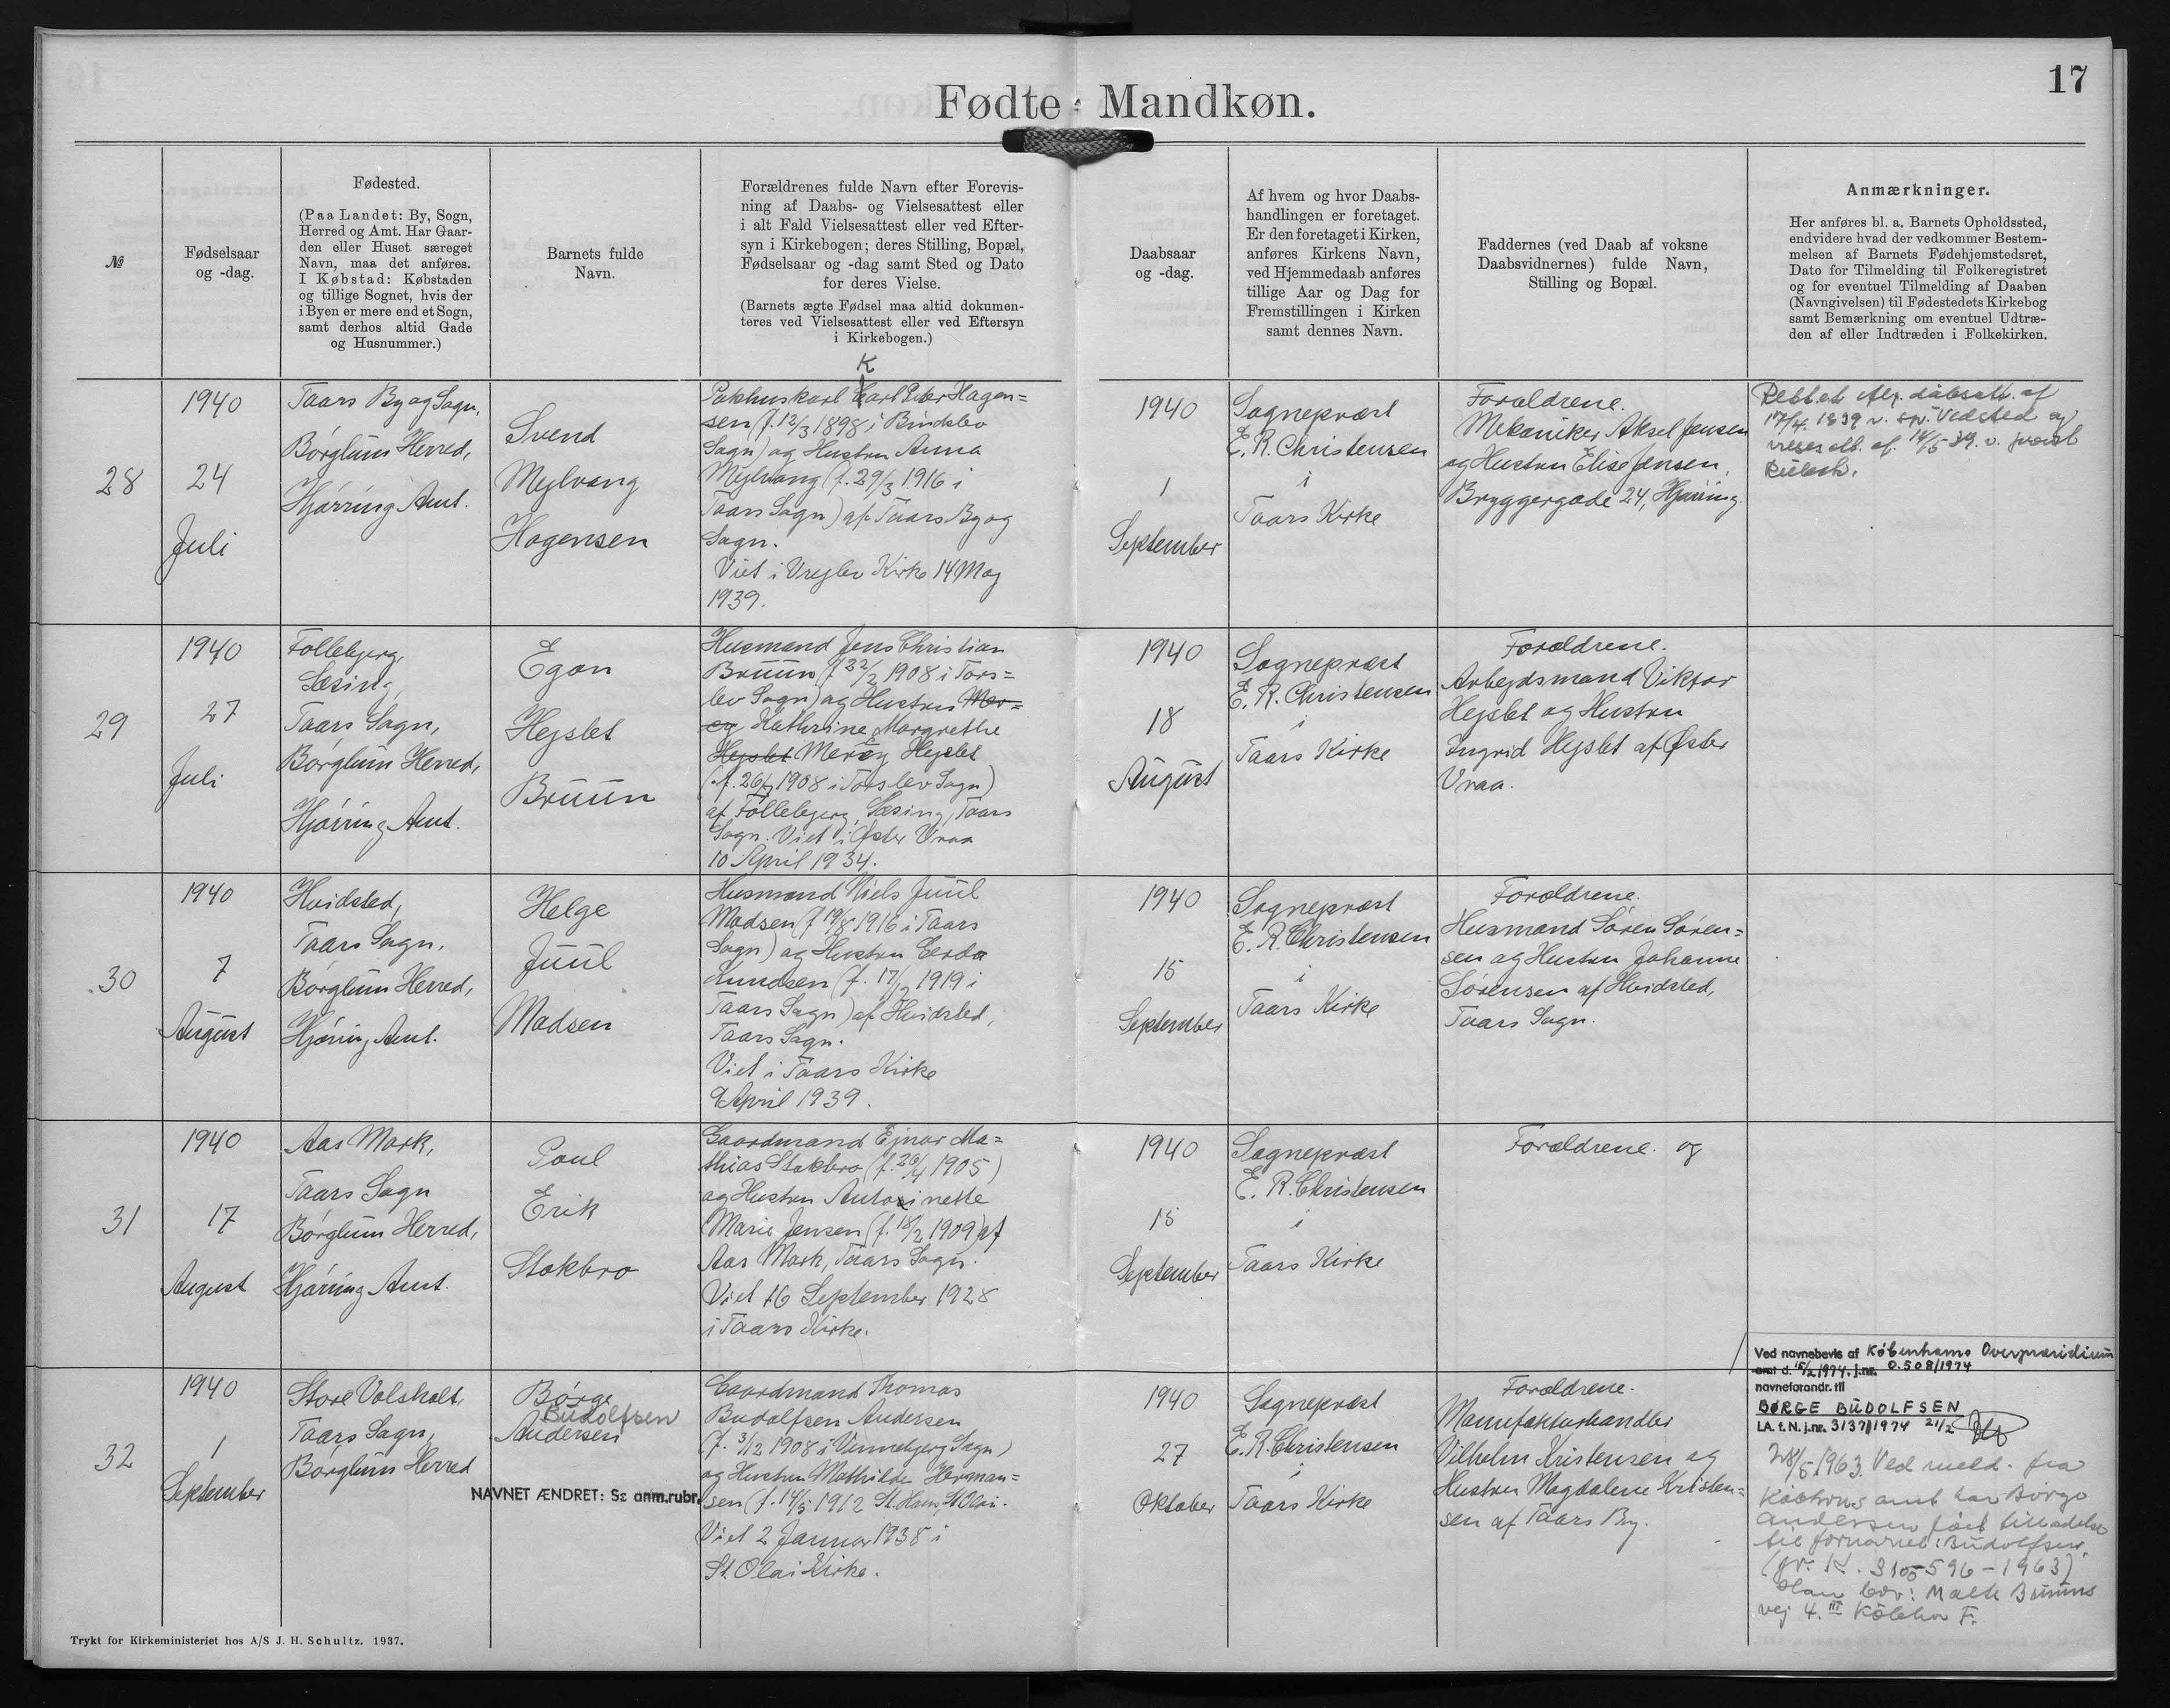 17
Fødte Mandkøn.
№
Fødselsaar
og -dag.
Fødested.
(Paa Landet: By, Sogn,
Herred og Amt. Har Gaar-
den eller Huset særeget
Navn, maa det anføres.
I Købstad: Købstaden
og tillige Sognet, hvis der
i Byen er mere end et Sogn,
samt derhos altid Gade
og Husnummer.)
Barnets fulde
Navn.
Forældrenes fulde Navn efter Forevis-
ning af Daabs- og Vielsesattest eller
i alt Fald Vielsesattest eller ved Efter-
syn i Kirkebogen; deres Stilling, Bopæl,
Fødselsaar og -dag samt Sted og Dato
for deres Vielse.
(Barnets ægte Fødsel maa altid dokumen-
teres ved Vielsesattest eller ved Eftersyn
i Kirkebogen.)
Daabsaar
og -dag.
Af hvem og hvor Daabs-
handlingen er foretaget.
Er den foretaget i Kirken,
anføres Kirkens Navn,
ved Hjemmedaab anføres
tillige Aar og Dag for
Fremstillingen i Kirken
samt dennes Navn.
Faddernes (ved Daab af voksne
Daabsvidnernes) fulde Navn,
Stilling og Bopæl.
Anmærkninger.
Her anføres bl. a. Barnets Opholdssted,
endvidere hvad der vedkommer Bestem-
melsen af Barnets Fødehjemstedsret,
Dato for Tilmelding til Folkeregistret
og for eventuel Tilmelding af Daaben
(Navngivelsen) til Fødestedets Kirkebog
samt Bemærkning om eventuel Udtræ-
den af eller Indtræden i Folkekirken.
28
1940
24
Juli
Taars By og Sogn,
Børglum Herred,
Hjørring Amt.
Svend
Mejlvang
Hagensen
K
Pakhuskarl Carl Peter Hagen=
sen (f. 12/3 1898 i Bindslev
Sogn) og Hustru Anna
Mejlvang (f. 29/3 1916 i
Taars Sogn) af Taars By og
Sogn.
Viet i Vrejlev Kirke 14 Maj
1939.
1940
1
September
Sognepræst
E. R. Christensen
i
Taars Kirke
Forældrene.
Mekaniker Aksel Jensen
og Hustru Elise Jensen,
Bryggergade 24, Hjørring.
Rettet dåbsatt. af
17/4. 1839 v. spr. Vedsted og
att. af. 14/5 39. v.
29
1940
27
Juli
Follebjerg,
Sæsing,
Taars Sogn,
Børglum Herred,
Hjørring Amt.
Egon
Hejslet
Bruun
Husmand Jens Christian
Bruun (f. 22/2 1908 i Tors=
lev Sogn) og Hustru Mer=
cy Kathrine Margrethe
Hejslet Mercy Hejslet
(f. 26/ 1908 i Torslev Sogn)
af Follebjerg, Sæsing, Taars
Sogn. Viet i Øster Vraa
10 April 1934.
1940
18
August
Sognepræst
E. R. Christensen
i
Taars Kirke
Forældrene.
Arbejdsmand Viktor
Hejslet og Hustru
Ingrid Hejslet af Øster
Vraa.
30
1940
7
August
Hvidsted,
Taars Sogn,
Børglum Herred,
Hjørring Amt.
Helge
Juul
Madsen
Husmand Niels Juul
Madsen (f. 19/8 1916 i Taars
Sogn) og Hustru Gerda
Knudsen (f. 17/2 1919 i
Taars Sogn) af Hvidsted,
Taars Sogn.
Viet i Taars Kirke
9 April 1939.
1940
15
September
Sognepræst
E. R. Christensen
i
Taars Kirke
Forældrene.
Husmand Søren Søren=
sen og Hustru Johanne
Sørensen af Hvidsted,
Taars Sogn.
31
1940
17
August
Aas Mark,
Taars Sogn
Børglum Herred,
Hjørring Amt.
Poul
Erik
Stokbro
Gaardmand Ejnar Ma=
thias Stokbro (f. 26/4 1905)
og Hustru Antoinette
Marie Jensen (f. 18/2 1909) af
Aas Mark, Taars Sogn.
Viet 16 September 1928
i Taars Kirke.
1940
15
September
Sognepræst
E. R. Christensen
i
Taars Kirke
Forældrene. og
32
1940
1
September
Store Volsholt,
Taars Sogn,
Børglum Herred
Børge
Budolfsen
Andersen
NAVNET ÆNDRET: Se anm.rubr.
Gaardmand Thomas
Budolfsen Andersen
(f. 3/12 1908 i Vennebjerg Sogn)
og Hustru Mathilde Herman=
sen (f. 14/5 1912 St. Hans, St. Olai.
Viet 2 Januar 1938 i
St. Olai Kirke.
1940
27
Oktober
Sognepræst
E. R. Christensen
i
Taars Kirke
Forældrene.
Manufakturhandler
Vilhelm Kristensen og
Hustru Magdalene Kristen=
sen af Taars By.
Ved navnebevis af Københavns Overpræsidium
amt d. 15/2 1974. j.nr. 0.508/1974
navneforandr. til
BØRGE BUDOLFSEN
LA. f. N. j.nr. 3137/1974 21/2
28/5 1963. Ved meld. fra
amt har Børge
Andersen fået tilladelse
til fornavnet: Budolfsen.
(gr. K. 3100-596-1963)
Han bor: Malte Bruuns
vej 4. III Kbhvn F.
Trykt for Kirkeministeriet hos A/S J. H. Schultz. 1937.